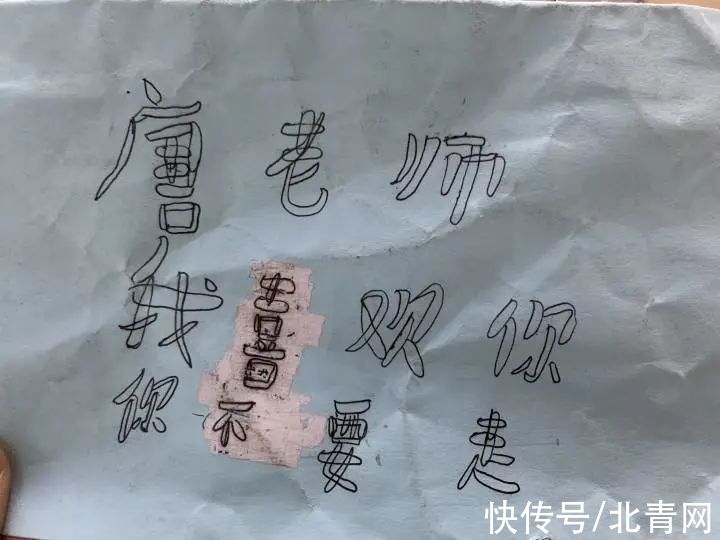 唐老师
我喜欢你
你不要走
快传号/北青网